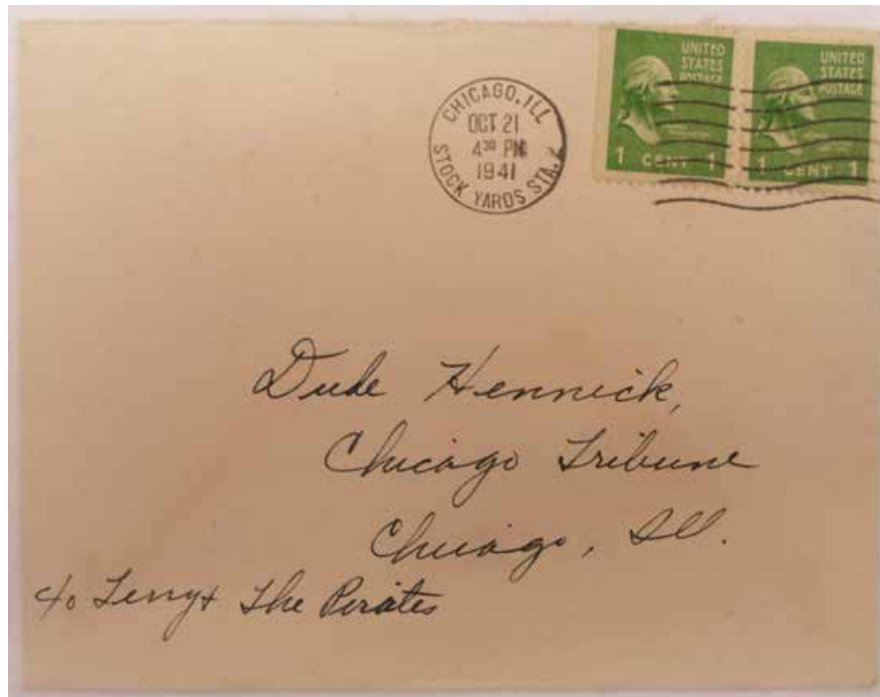 CHICAGO, ILL
OCT 21
4³⁰ PM
1941
STOCK YARDS STA.
UNITED
STATES
POSTAGE
1 CENT 1
UNITED
STATES
POSTAGE
1 CENT 1
Dude Hennick,
Chicago Tribune
Chicago, Ill.
c/o Terry + The Pirates